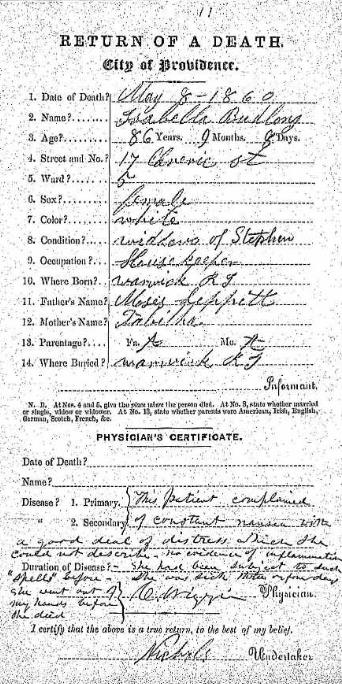 11
RETURN OF A DEATH.
City of Providence.
1. Date of Death? May 8-1860
2. Name? Isabella Budlong
3. Age? 86 Years. 9 Months. 8 Days.
4. Street and No.? 17 st
5. Ward? 5
6. Sex? female
7. Color? white
8. Condition? widow of Stephen
9. Occupation? House keeper
10. Where Born? Warwick RI
11. Father's Name? Moses Lippett
12. Mother's Name? Tabitha
13. Parentage? Fa. A Mo. A
14. Where Buried? Warwick RI
Informant.
N. B. At Nos. 4 and 5, give the place where the person died. At No. 8, state whether married
or single, widow or widower. At No. 13, state whether parents were American, Irish, English,
German, Scotch, French, &c.
PHYSICIAN'S CERTIFICATE.
Date of Death?
Name?
Disease? 1. Primary, This patient complained
" 2. Secondary, of constant nausea with
a good deal of distress which she
could not describe - no evidence of inflammation
Duration of Disease? - She had been subject to such
"spells" before - She was sick three or four days
She went out of C. Wiggin Physician.
my hands before
she died
I certify that the above is a true return, to the best of my belief.
Nichols Undertaker